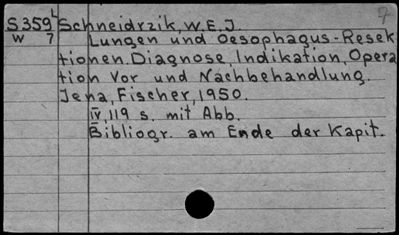 7
S359L Schneidrzik, W.E.J.
W 7 Lungen und Oesophagus-Resek
tionen. Diagnose, Indikation, Opera
tion Vor und Nachbehandlung.
Jena, Fischer, 1950.
IV, 119 s. mit Abb.
Bibliogr. am Ende der Kapit.